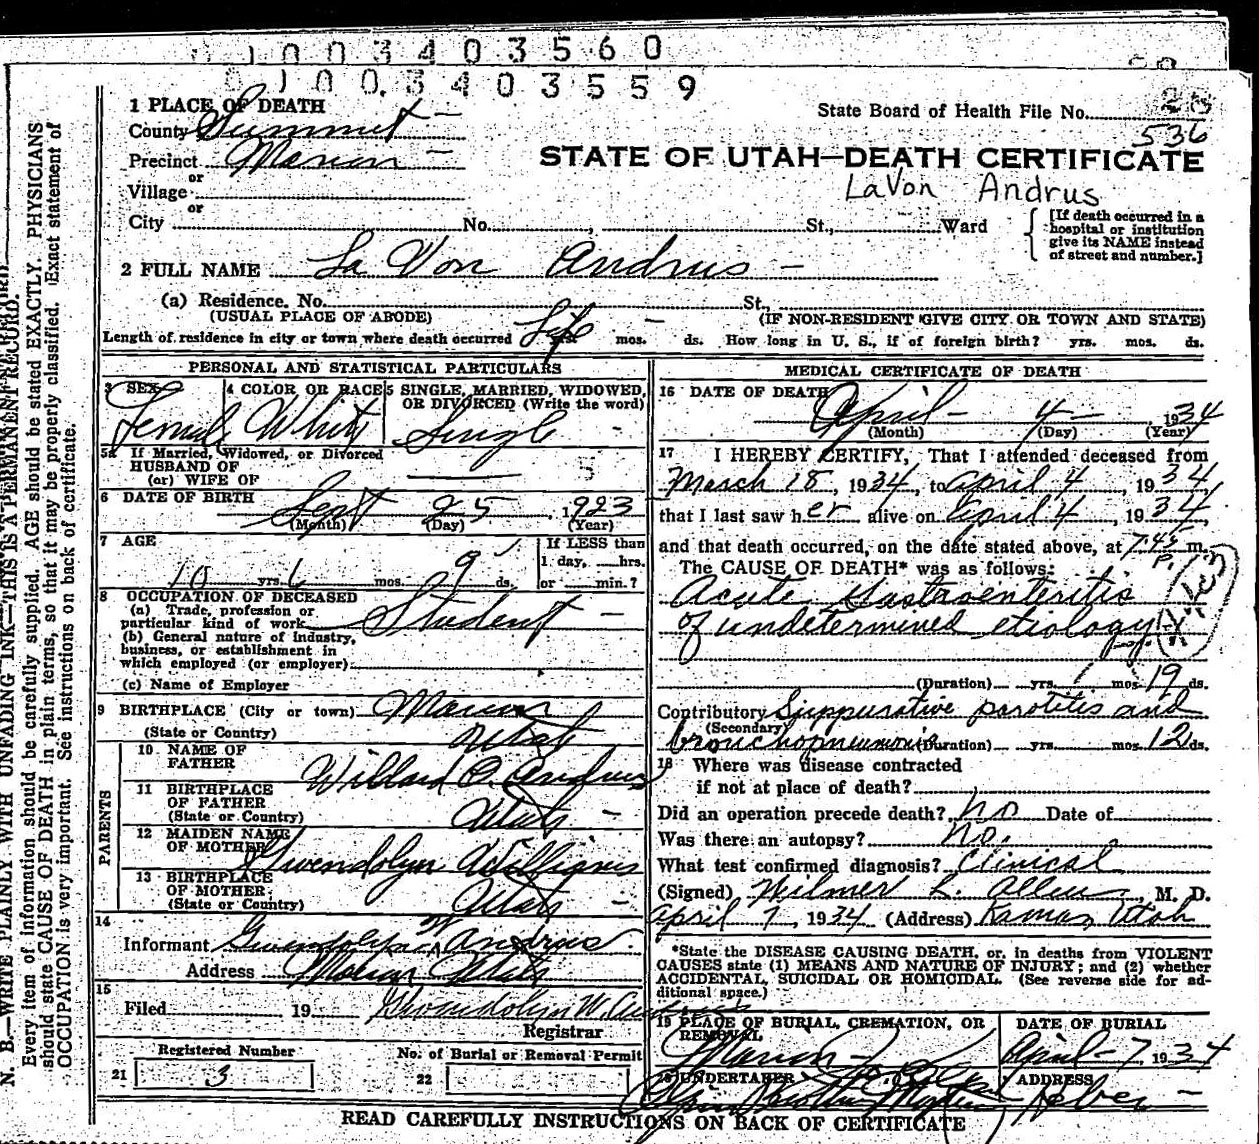 0 1 0 0 3 4 0 3 5 6 0
0 1 0 0 3 4 0 3 5 5 9
1 PLACE OF DEATH
State Board of Health File No.
County Summit
536
Precinct Marion
STATE OF UTAH—DEATH CERTIFICATE
or
LaVon Andrus
Village
or
City No. , St., Ward
[If death occurred in a hospital or institution give its NAME instead of street and number.]
2 FULL NAME La Von Andrus
(a) Residence. No. St.,
(USUAL PLACE OF ABODE) (IF NON-RESIDENT GIVE CITY OR TOWN AND STATE)
Length of residence in city or town where death occurred Life mos. ds. How long in U. S., if of foreign birth? yrs. mos. ds.
PERSONAL AND STATISTICAL PARTICULARS
3 SEX 4 COLOR OR RACE 5 SINGLE, MARRIED, WIDOWED, OR DIVORCED (Write the word)
Female White Single
5a If Married, Widowed, or Divorced
HUSBAND OF
(or) WIFE OF
6 DATE OF BIRTH Sept 25, 1923
(Month) (Day) (Year)
7 AGE
10 yrs. 6 mos. 9 ds.
If LESS than
1 day, hrs.
or min.?
8 OCCUPATION OF DECEASED
(a) Trade, profession or
particular kind of work Student
(b) General nature of industry,
business, or establishment in
which employed (or employer)
(c) Name of Employer
9 BIRTHPLACE (City or town) Marion
(State or Country) Utah
PARENTS
10 NAME OF FATHER Willard O. Andrus
11 BIRTHPLACE OF FATHER (State or Country) Utah
12 MAIDEN NAME OF MOTHER Gwendolyn Williams
13 BIRTHPLACE OF MOTHER (State or Country) Utah
14
Informant Gwendolyn W Andrus
Address Marion Utah
15
Filed 19 Gwendolyn W. Andrus
Registrar
Registered Number No. of Burial or Removal Permit
21 3 22
MEDICAL CERTIFICATE OF DEATH
16 DATE OF DEATH April 4 1934
(Month) (Day) (Year)
17 I HEREBY CERTIFY, That I attended deceased from
March 18, 1934, to April 4, 1934
that I last saw her alive on April 4, 1934,
and that death occurred, on the date stated above, at 7:45 P. m.
The CAUSE OF DEATH* was as follows:
Acute Gastroenteritis
of undetermined etiology
(Duration) yrs. mos. 19 ds.
Contributory Suppurative parotitis and
(Secondary)
bronchopneumonia (Duration) yrs. mos. 12 ds.
18 Where was disease contracted
if not at place of death?
Did an operation precede death? no Date of
Was there an autopsy? no.
What test confirmed diagnosis? Clinical
(Signed) Wilmer L. Allen M. D.
April 7 1934 (Address) Kamas Utah
*State the DISEASE CAUSING DEATH, or, in deaths from VIOLENT
CAUSES state (1) MEANS AND NATURE OF INJURY; and (2) whether
ACCIDENTAL, SUICIDAL OR HOMICIDAL. (See reverse side for ad-
ditional space.)
19 PLACE OF BURIAL, CREMATION, OR REMOVAL DATE OF BURIAL
Marion April 7 1934
20 UNDERTAKER ADDRESS
Heber
READ CAREFULLY INSTRUCTIONS ON BACK OF CERTIFICATE
N. B.—WRITE PLAINLY WITH UNFADING INK—THIS IS A PERMANENT RECORD.
Every item of information should be carefully supplied. AGE should be stated EXACTLY. PHYSICIANS
should state CAUSE OF DEATH in plain terms, so that it may be properly classified. Exact statement of
OCCUPATION is very important. See instructions on back of certificate.